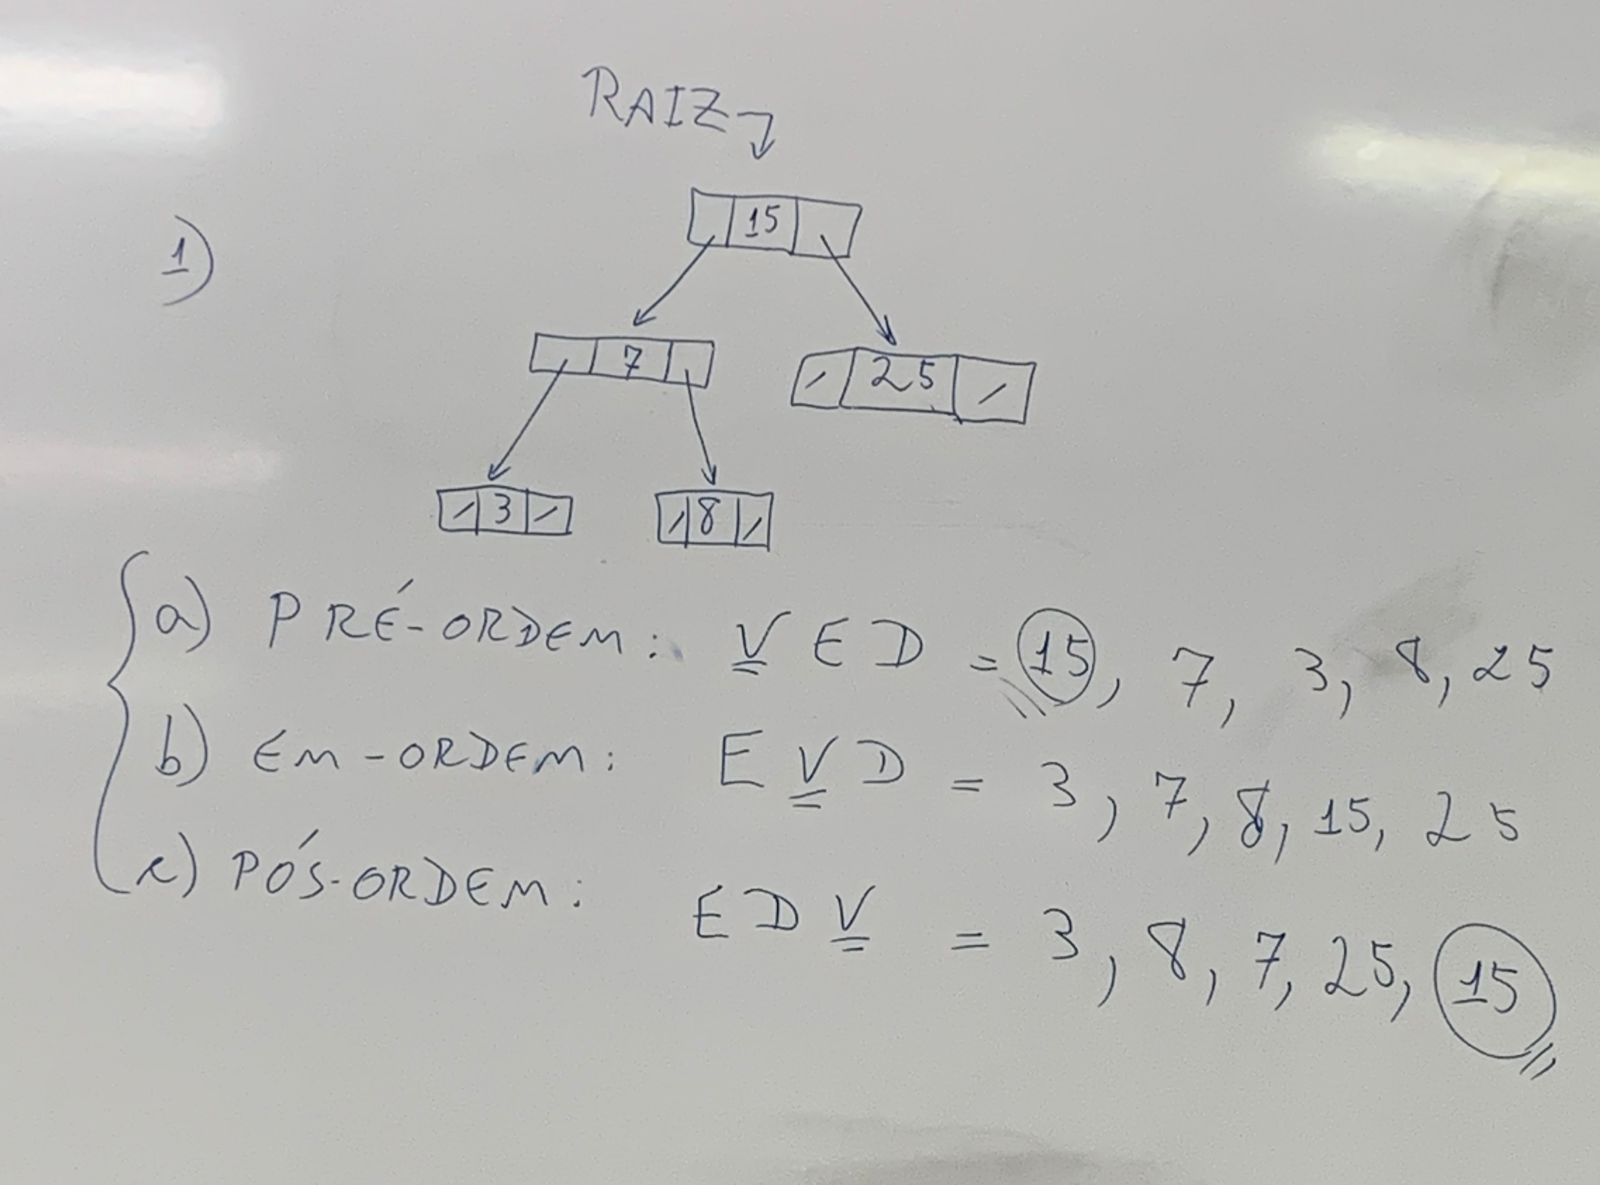 RAIZ
1)
15
7
25
3
8
a) PRÉ-ORDEM: VED = 15, 7, 3, 8, 25
b) EM-ORDEM: EVD = 3, 7, 8, 15, 25
c) PÓS-ORDEM: EDV = 3, 8, 7, 25, 15